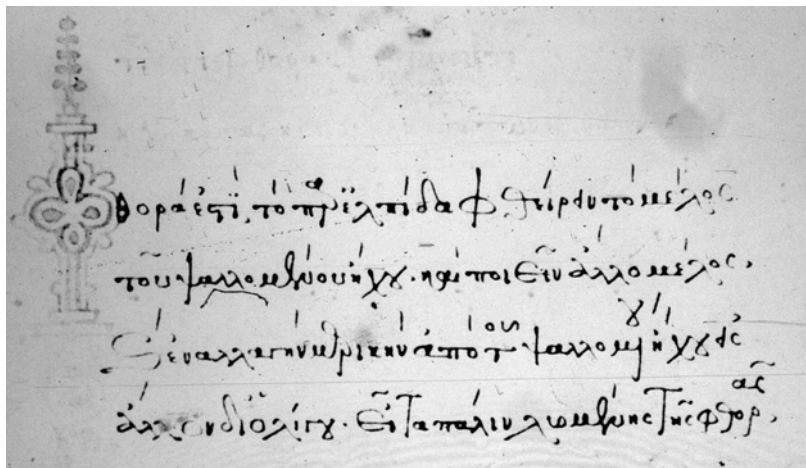 Φθορά ἐστϊ, τὸ παρ ἐλπίδα φθείρειν τὸ μέλος
τοῦ ψαλλομένου ἤχου. καὶ ποιεῖν ἄλλο μέλος,
καὶ ἐναλλαγὴν μερικὴν ἀπὸ τοῦ ψαλλομένου ἤχου εἰς
ἄλλον δι ὀλίγου. εἶτα πάλιν λυομένης τῆς φθορᾶς,